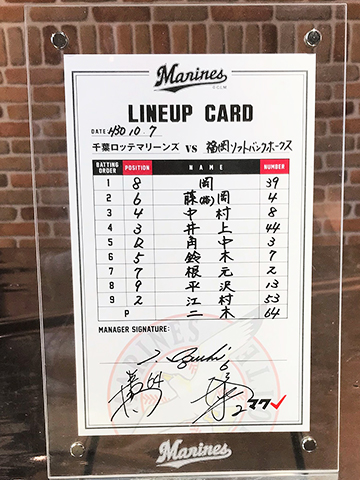 Marines
©C.L.M.
LINEUP CARD
DATE: H30 10 7
千葉ロッテマリーンズ VS 福岡ソフトバンクホークス
BATTING ORDER POSITION NAME NUMBER
1 8 岡 39
2 6 藤(裕)岡 4
3 4 中村 8
4 3 井上 44
5 D 角中 3
6 5 鈴木 7
7 7 根元 2
8 9 平沢 13
9 2 江村 53
P 二木 64
MANAGER SIGNATURE:
Marines